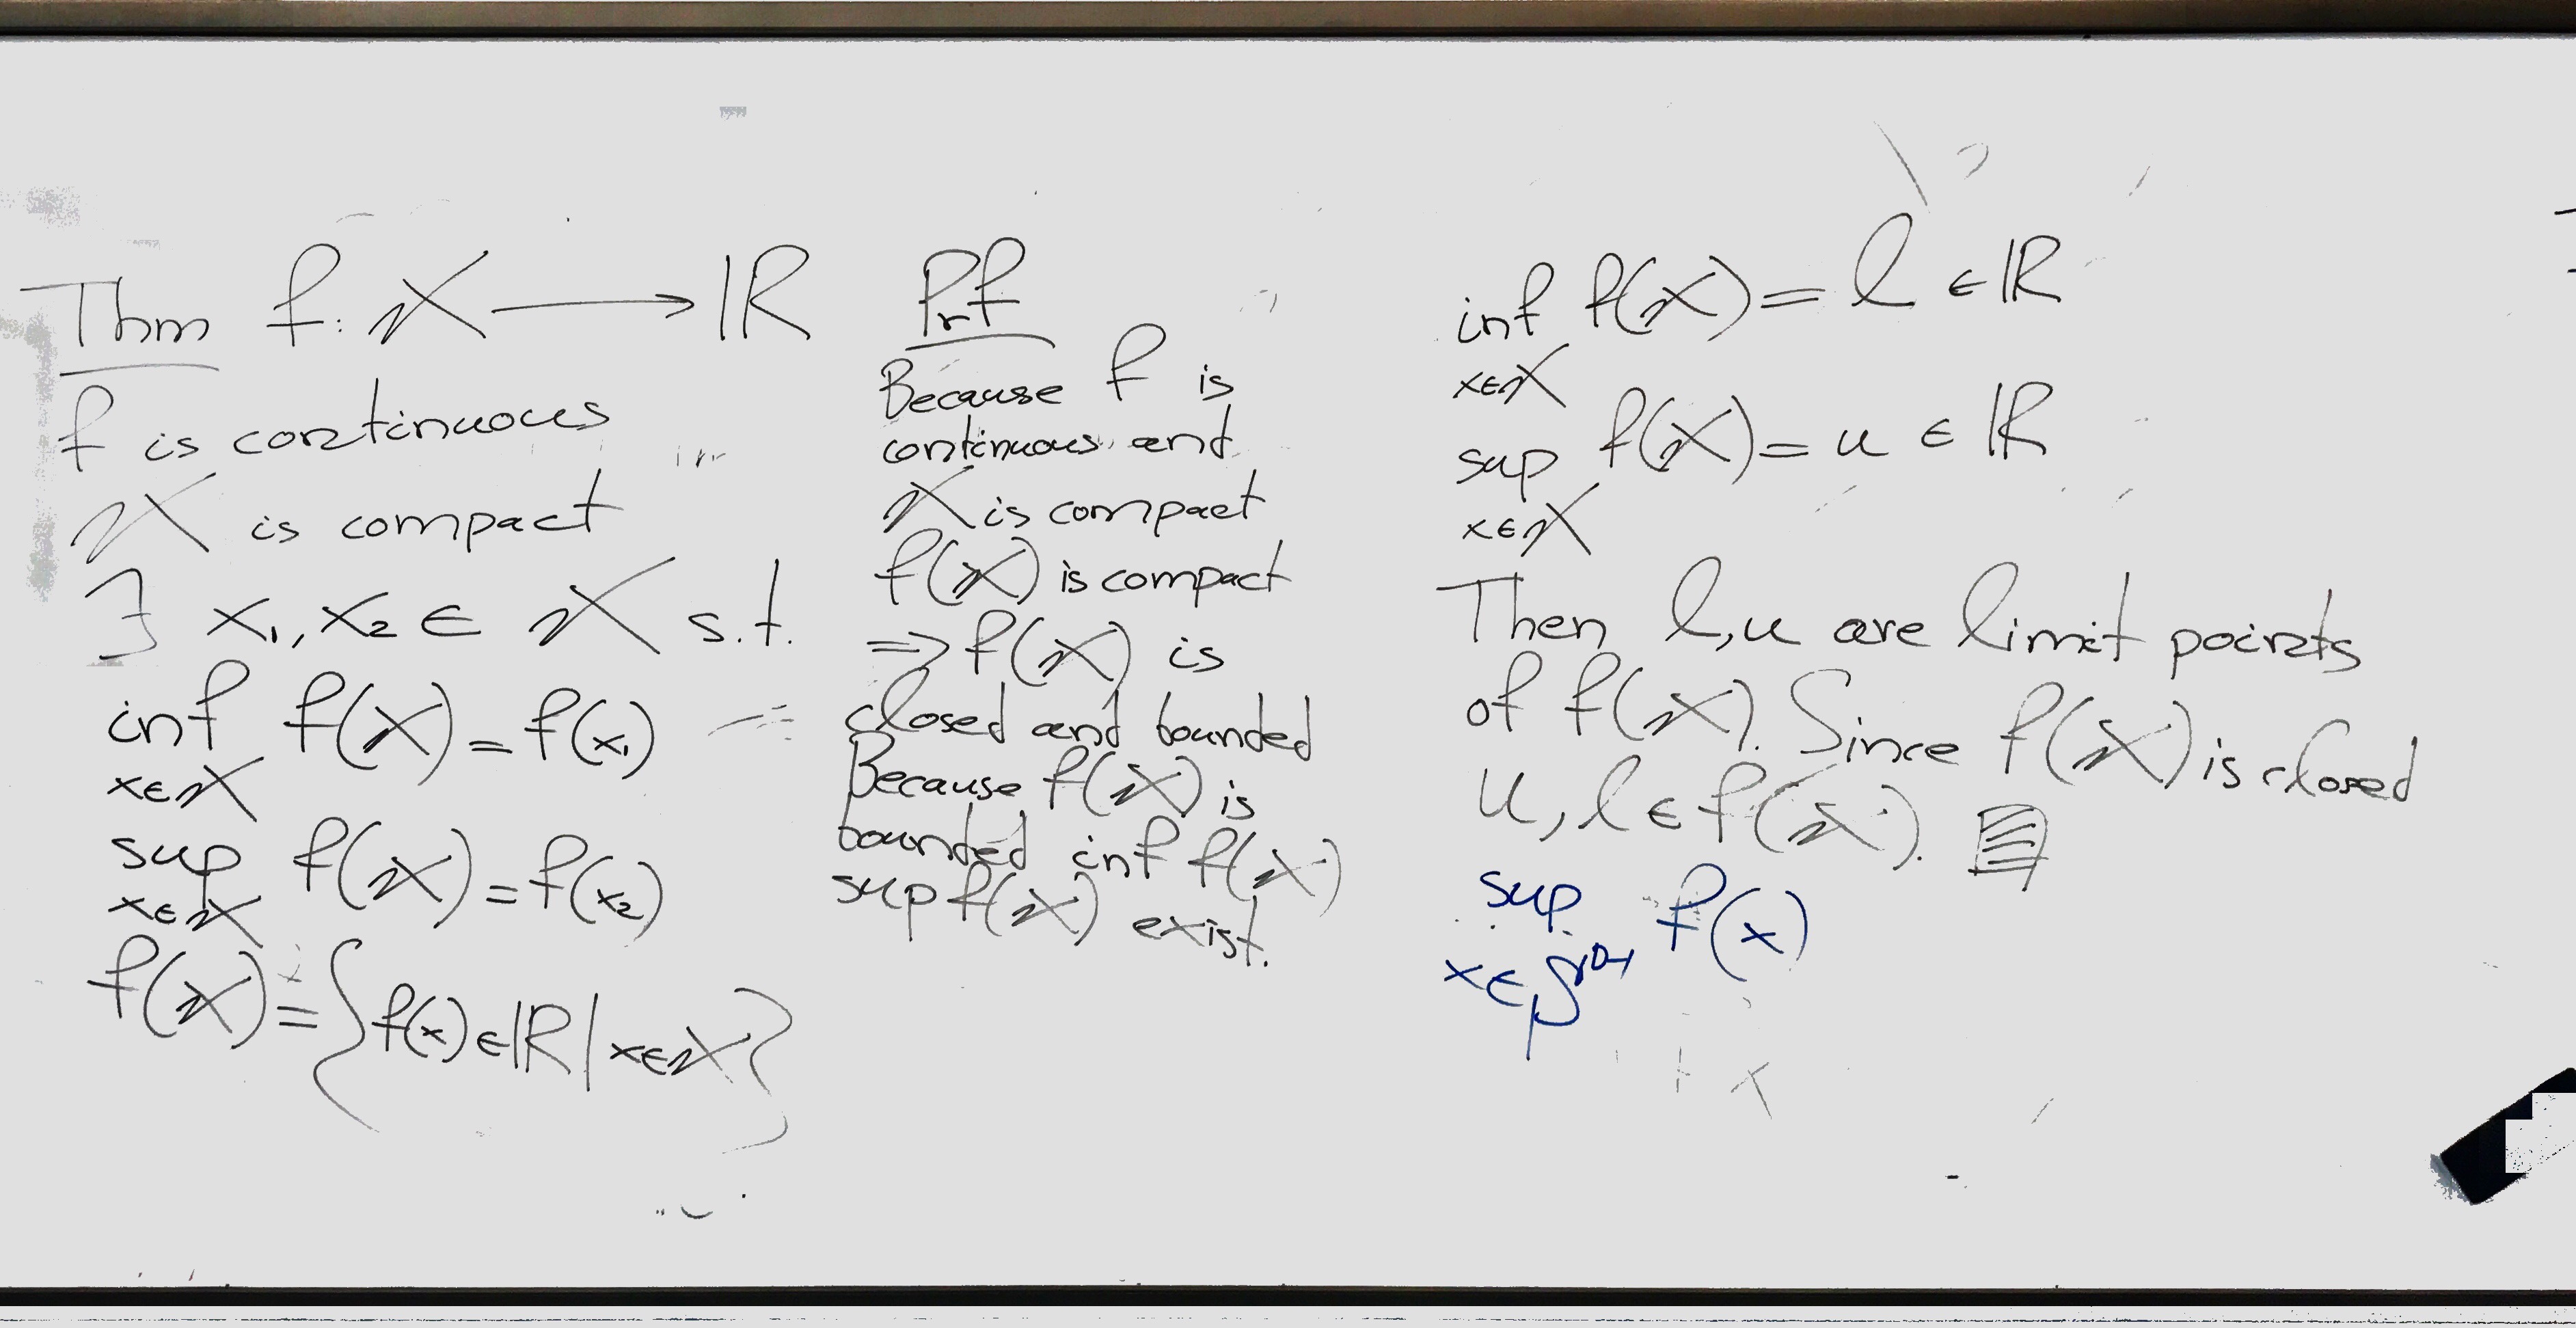 Thm f: X → ℝ
f is continuous
X is compact
∃ x₁, x₂ ∈ X s.t.
inf f(X) = f(x₁)
x∈X
sup f(X) = f(x₂)
x∈X
f(X) = { f(x) ∈ ℝ | x∈X }
Prf
Because f is
continuous and
X is compact
f(X) is compact
⇒ f(X) is
closed and bounded
Because f(X) is
bounded inf f(X)
sup f(X) exist.
inf f(X) = l ∈ ℝ
x∈X
sup f(X) = u ∈ ℝ
x∈X
Then l, u are limit points
of f(X). Since f(X) is closed
u, l ∈ f(X).
sup f(x)
x∈